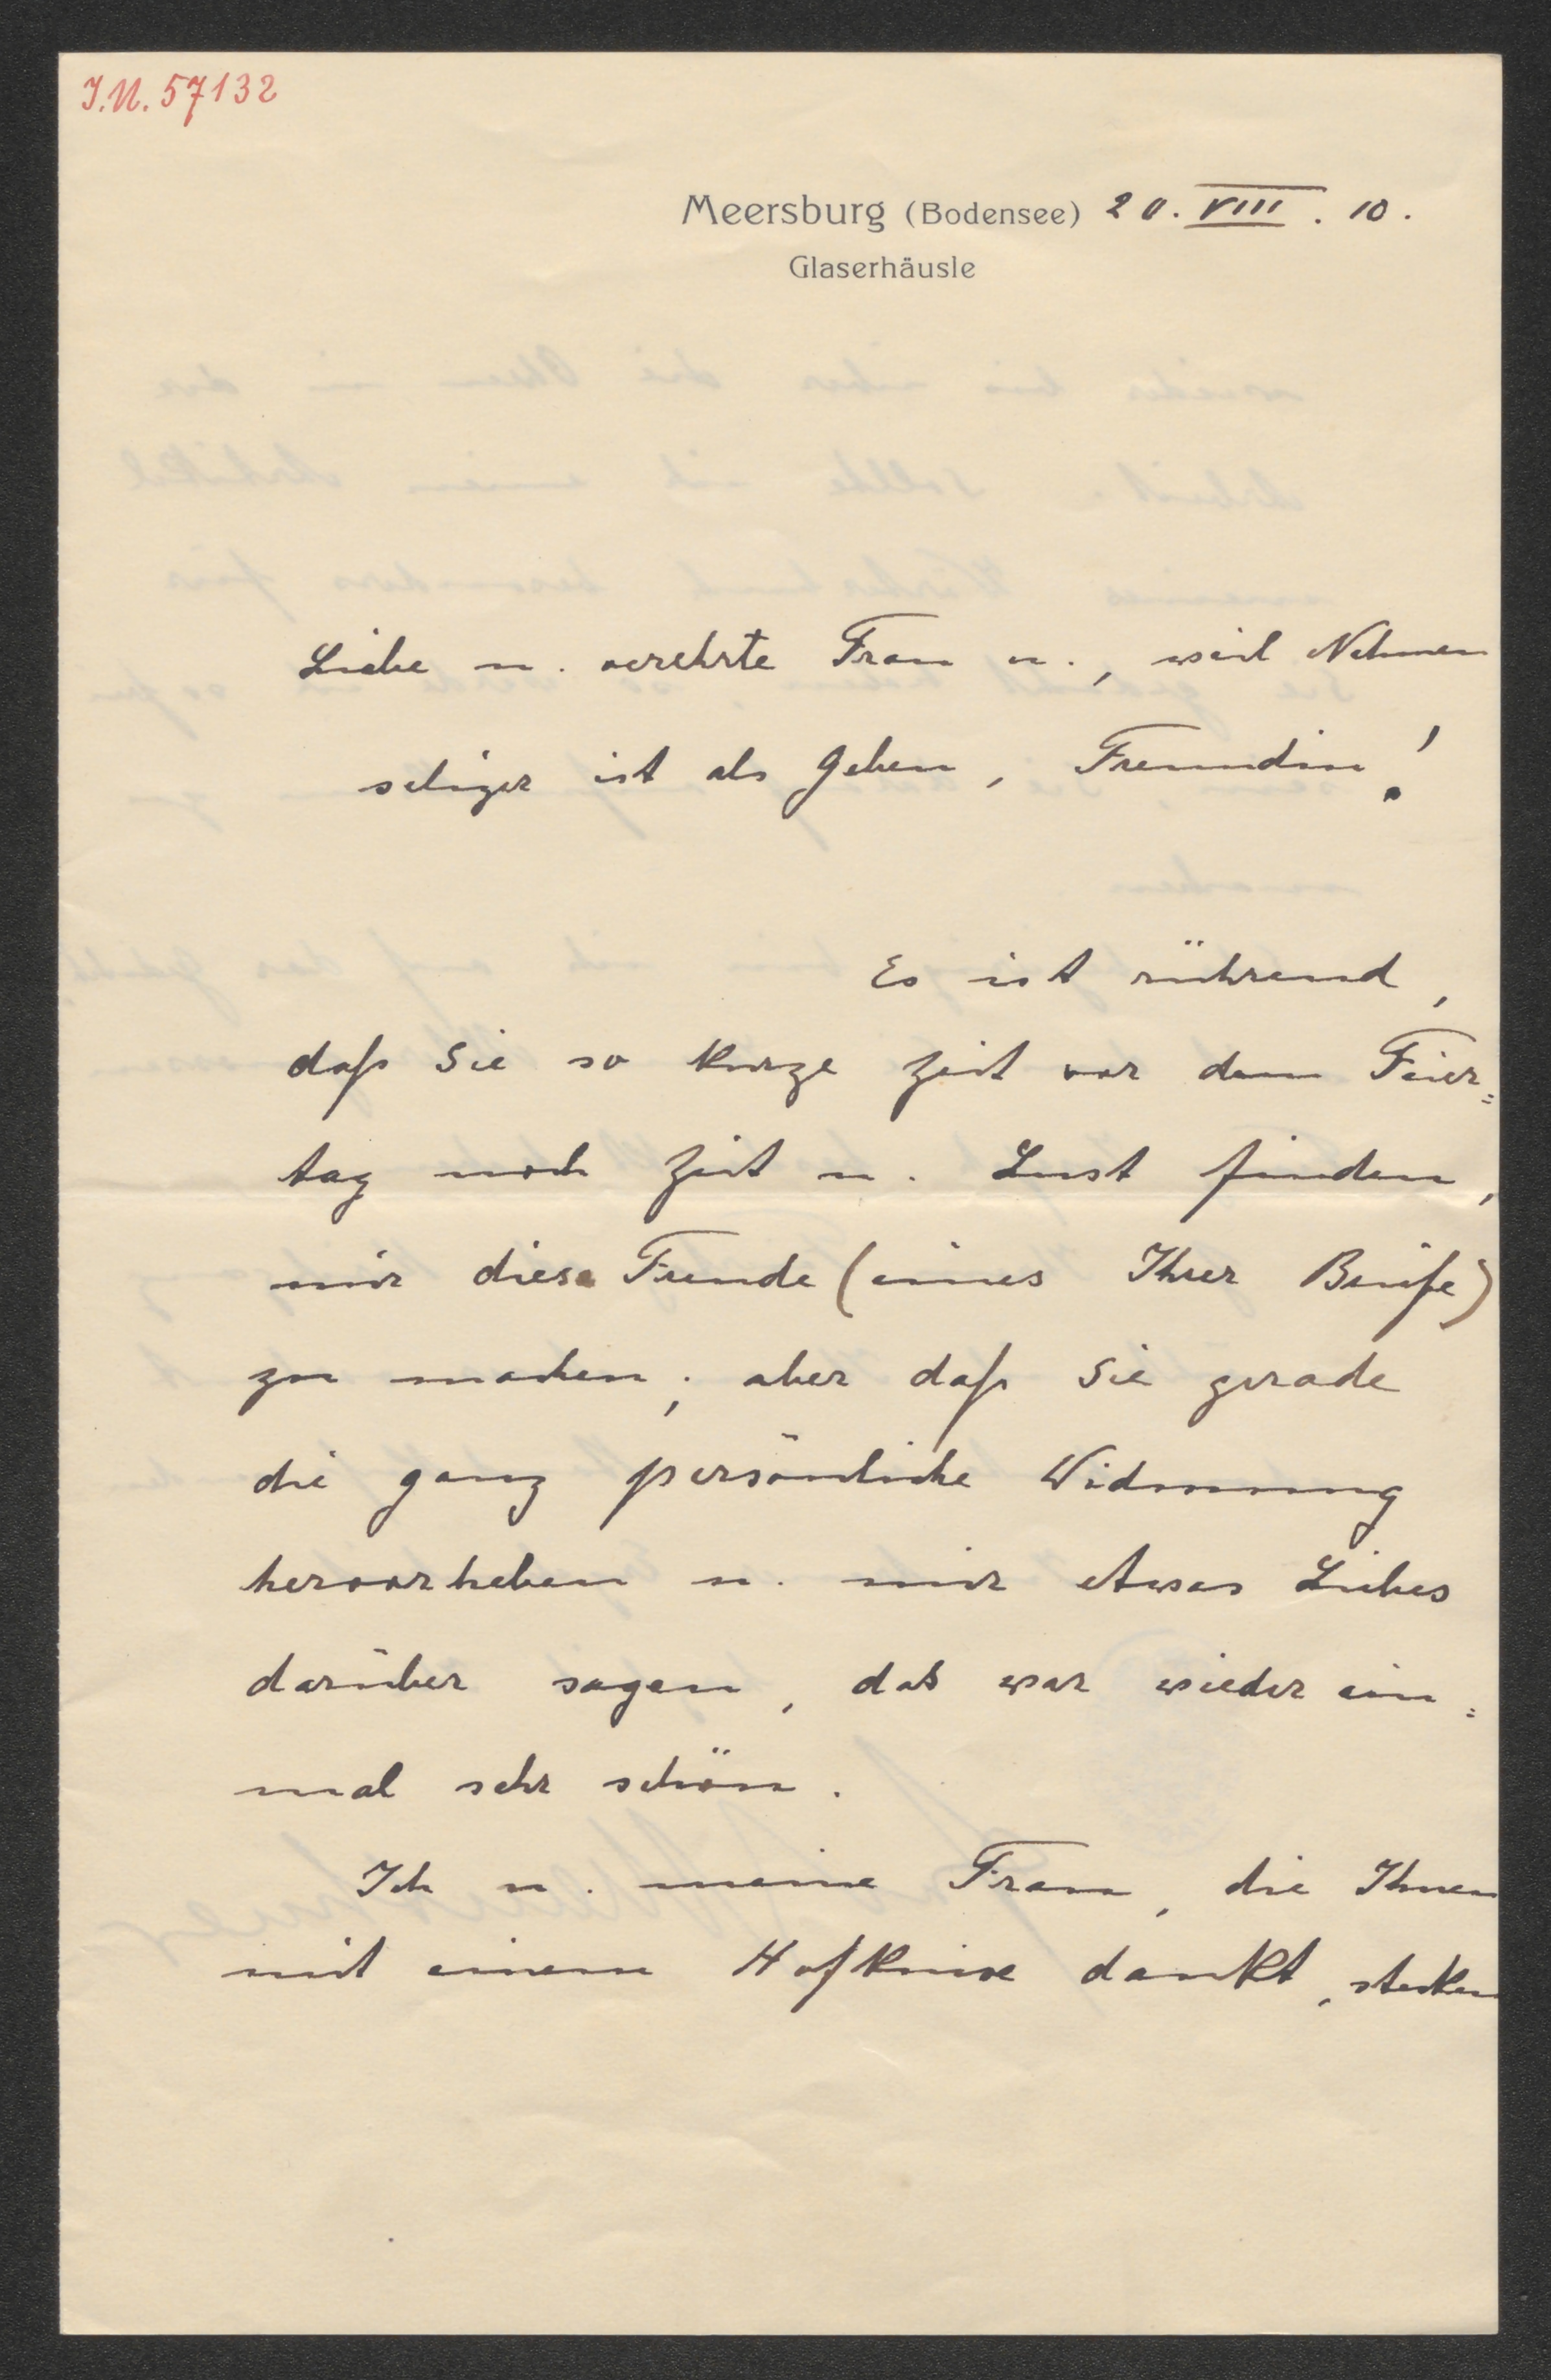 I.N. 57132
Meersburg (Bodensee) 20. VIII. 10.
Glaserhäusle
Liebe u. verehrte Frau u., weil Nehmen
seliger ist als Geben, Freundin!
Es ist rührend,
daß Sie so kurze Zeit vor dem Feier=
tag noch Zeit u. Lust finden,
mir diese Freude (eines Ihrer Briefe)
zu machen; aber daß Sie gerade
die ganz persönliche Widmung
hervorheben u. mir etwas Liebes
darüber sagen, das war wieder ein=
mal sehr schön.
Ich u. meine Frau, die Ihnen
mit einem Hofknixe dankt, stecken